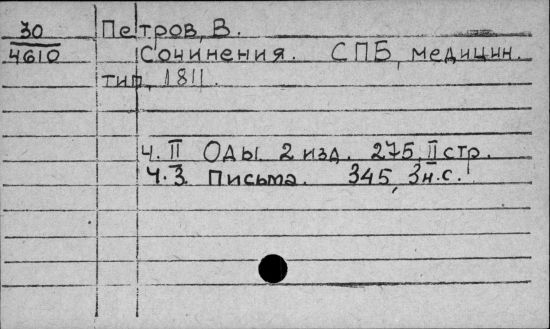 30 Петров, В.
4610 Сочинения. СПБ, медицин.
тип, 1811.
ч. II Оды. 2 изд. 275, II стр.
Ч. 3. Письма. 345, 3н.с.